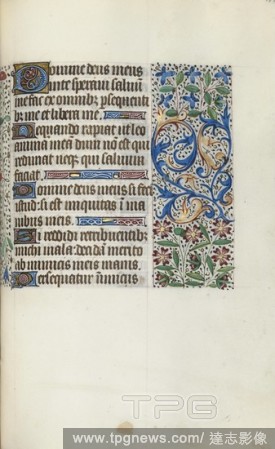 Domine deus meus
in te speravi salvu
me fac ex omnibz psequenti
bz me et libera me.
Nequando rapiat ut leo
anima mea dum no est qui
redimat neqz qui salvum
faciat.
Domine deus meus si feci
istud si est iniquitas i ma
nibus meis.
Si reddidi retribuentibz
michi mala decida merito
ab inimicis meis inanis.
Persequatur inimicus
TPG
www.tpgnews.com/ 達志影像